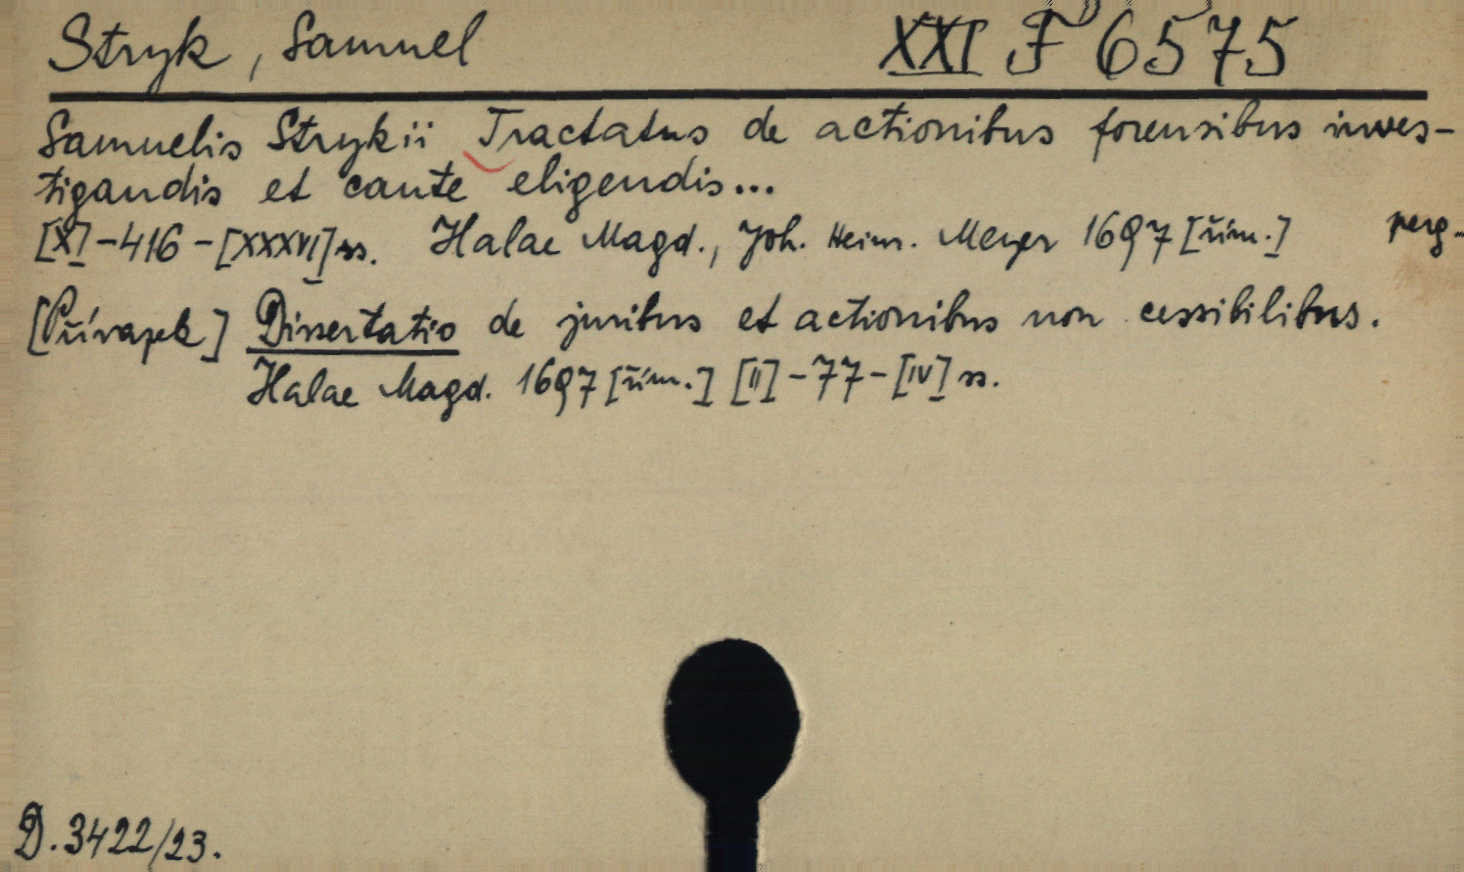 Stryk, Samuel XXI F 6575
Samuelis Strykii Tractatus de actionibus forensibus inves-
tigandis et caute eligendis...
[X]-416-[XXXVI] ss. Halae Magd., Joh. Heinr. Meyer 1697 [řím.] perg.
[Přívazek] Dissertatio de juribus et actionibus non cessibilibus.
Halae Magd. 1697 [řím.] [II]-77-[IV] ss.
D. 3422/23.